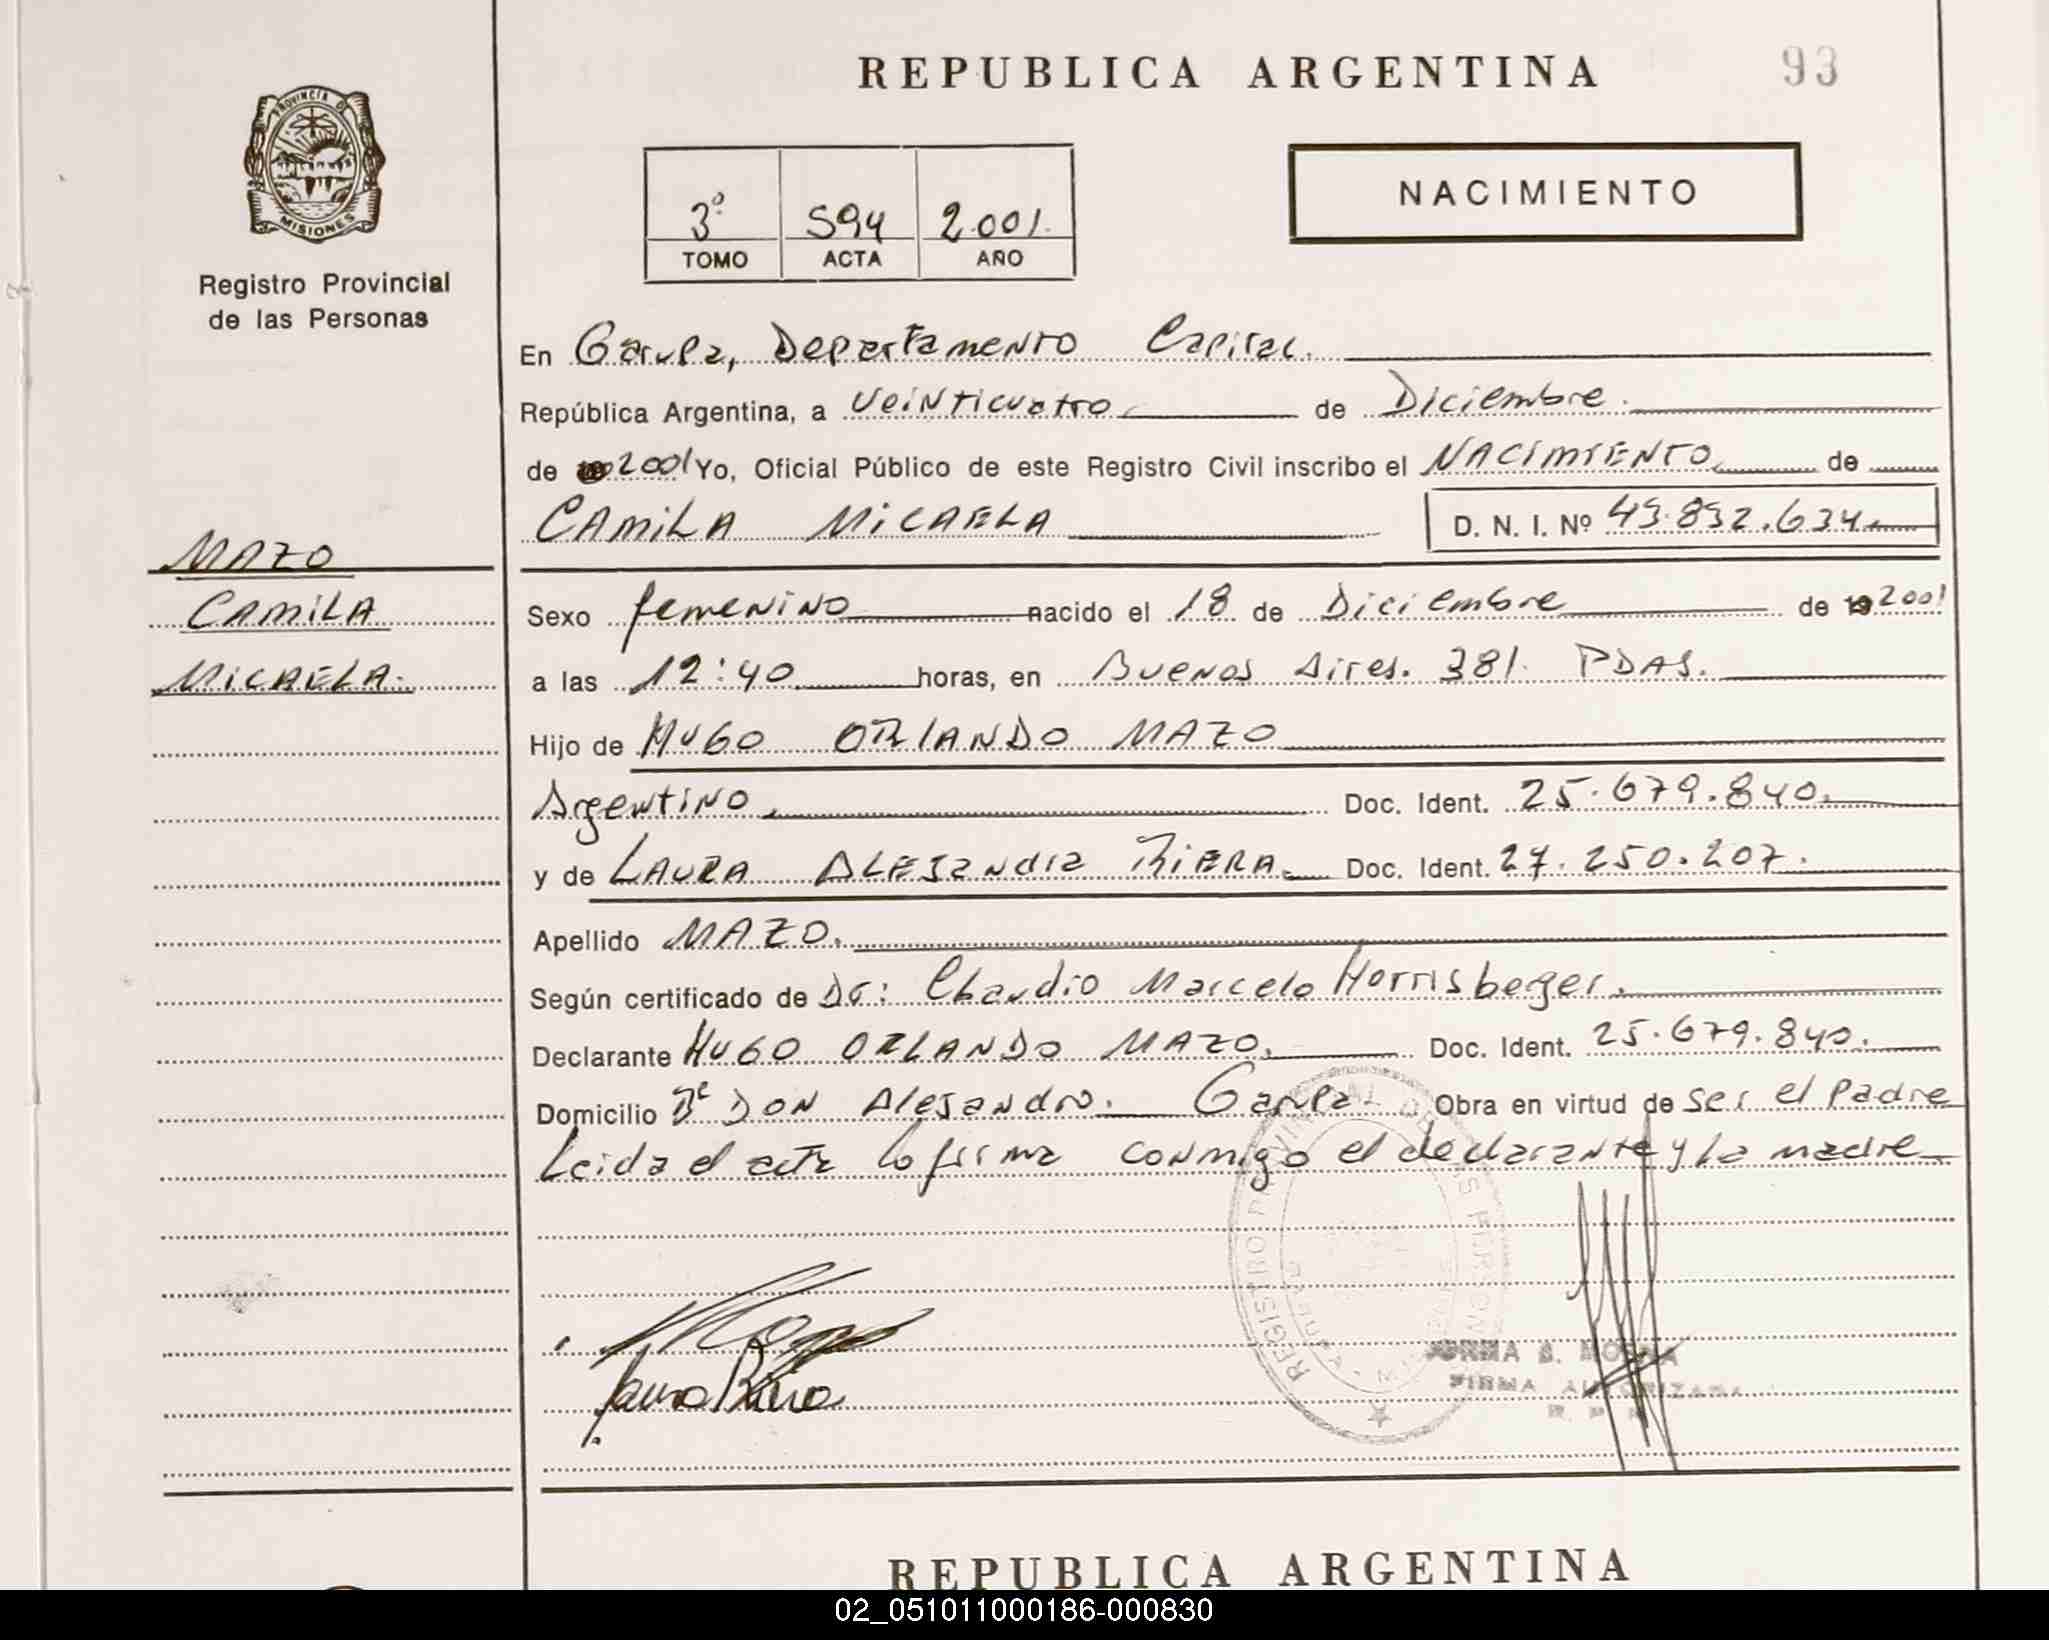 REPUBLICA ARGENTINA
93
PROVINCIA DE
MISIONES
Registro Provincial
de las Personas
NACIMIENTO
3º 594 2.001.
TOMO ACTA AÑO
En Garupa, Departamento Capital.
República Argentina, a veinticuatro de Diciembre.
de 2001 Yo, Oficial Público de este Registro Civil inscribo el NACIMIENTO de
CAMILA MICAELA D. N. I. Nº 43.832.634.
MAZO
CAMILA
MICAELA.
Sexo femenino nacido el 18 de Diciembre de 2001
a las 12:40 horas, en Buenos Aires. 381. PDAS.
Hijo de HUGO ORLANDO MAZO
Argentino. Doc. Ident. 25.679.840.
y de LAURA ALEJANDRA RIERA. Doc. Ident. 27.250.207.
Apellido MAZO.
Según certificado de Dr: Claudio Marcelo Horrisberger.
Declarante HUGO ORLANDO MAZO. Doc. Ident. 25.679.840.
Domicilio Bº DON Alejandro. Garupa Obra en virtud de ser el padre
Leida el acta la firma conmigo el declarante y la madre
REGISTRO PROVINCIAL DE LAS PERSONAS
Laura Riera
NORMA
FIRMA AUTORIZADA
REPUBLICA ARGENTINA
02_051011000186-000830